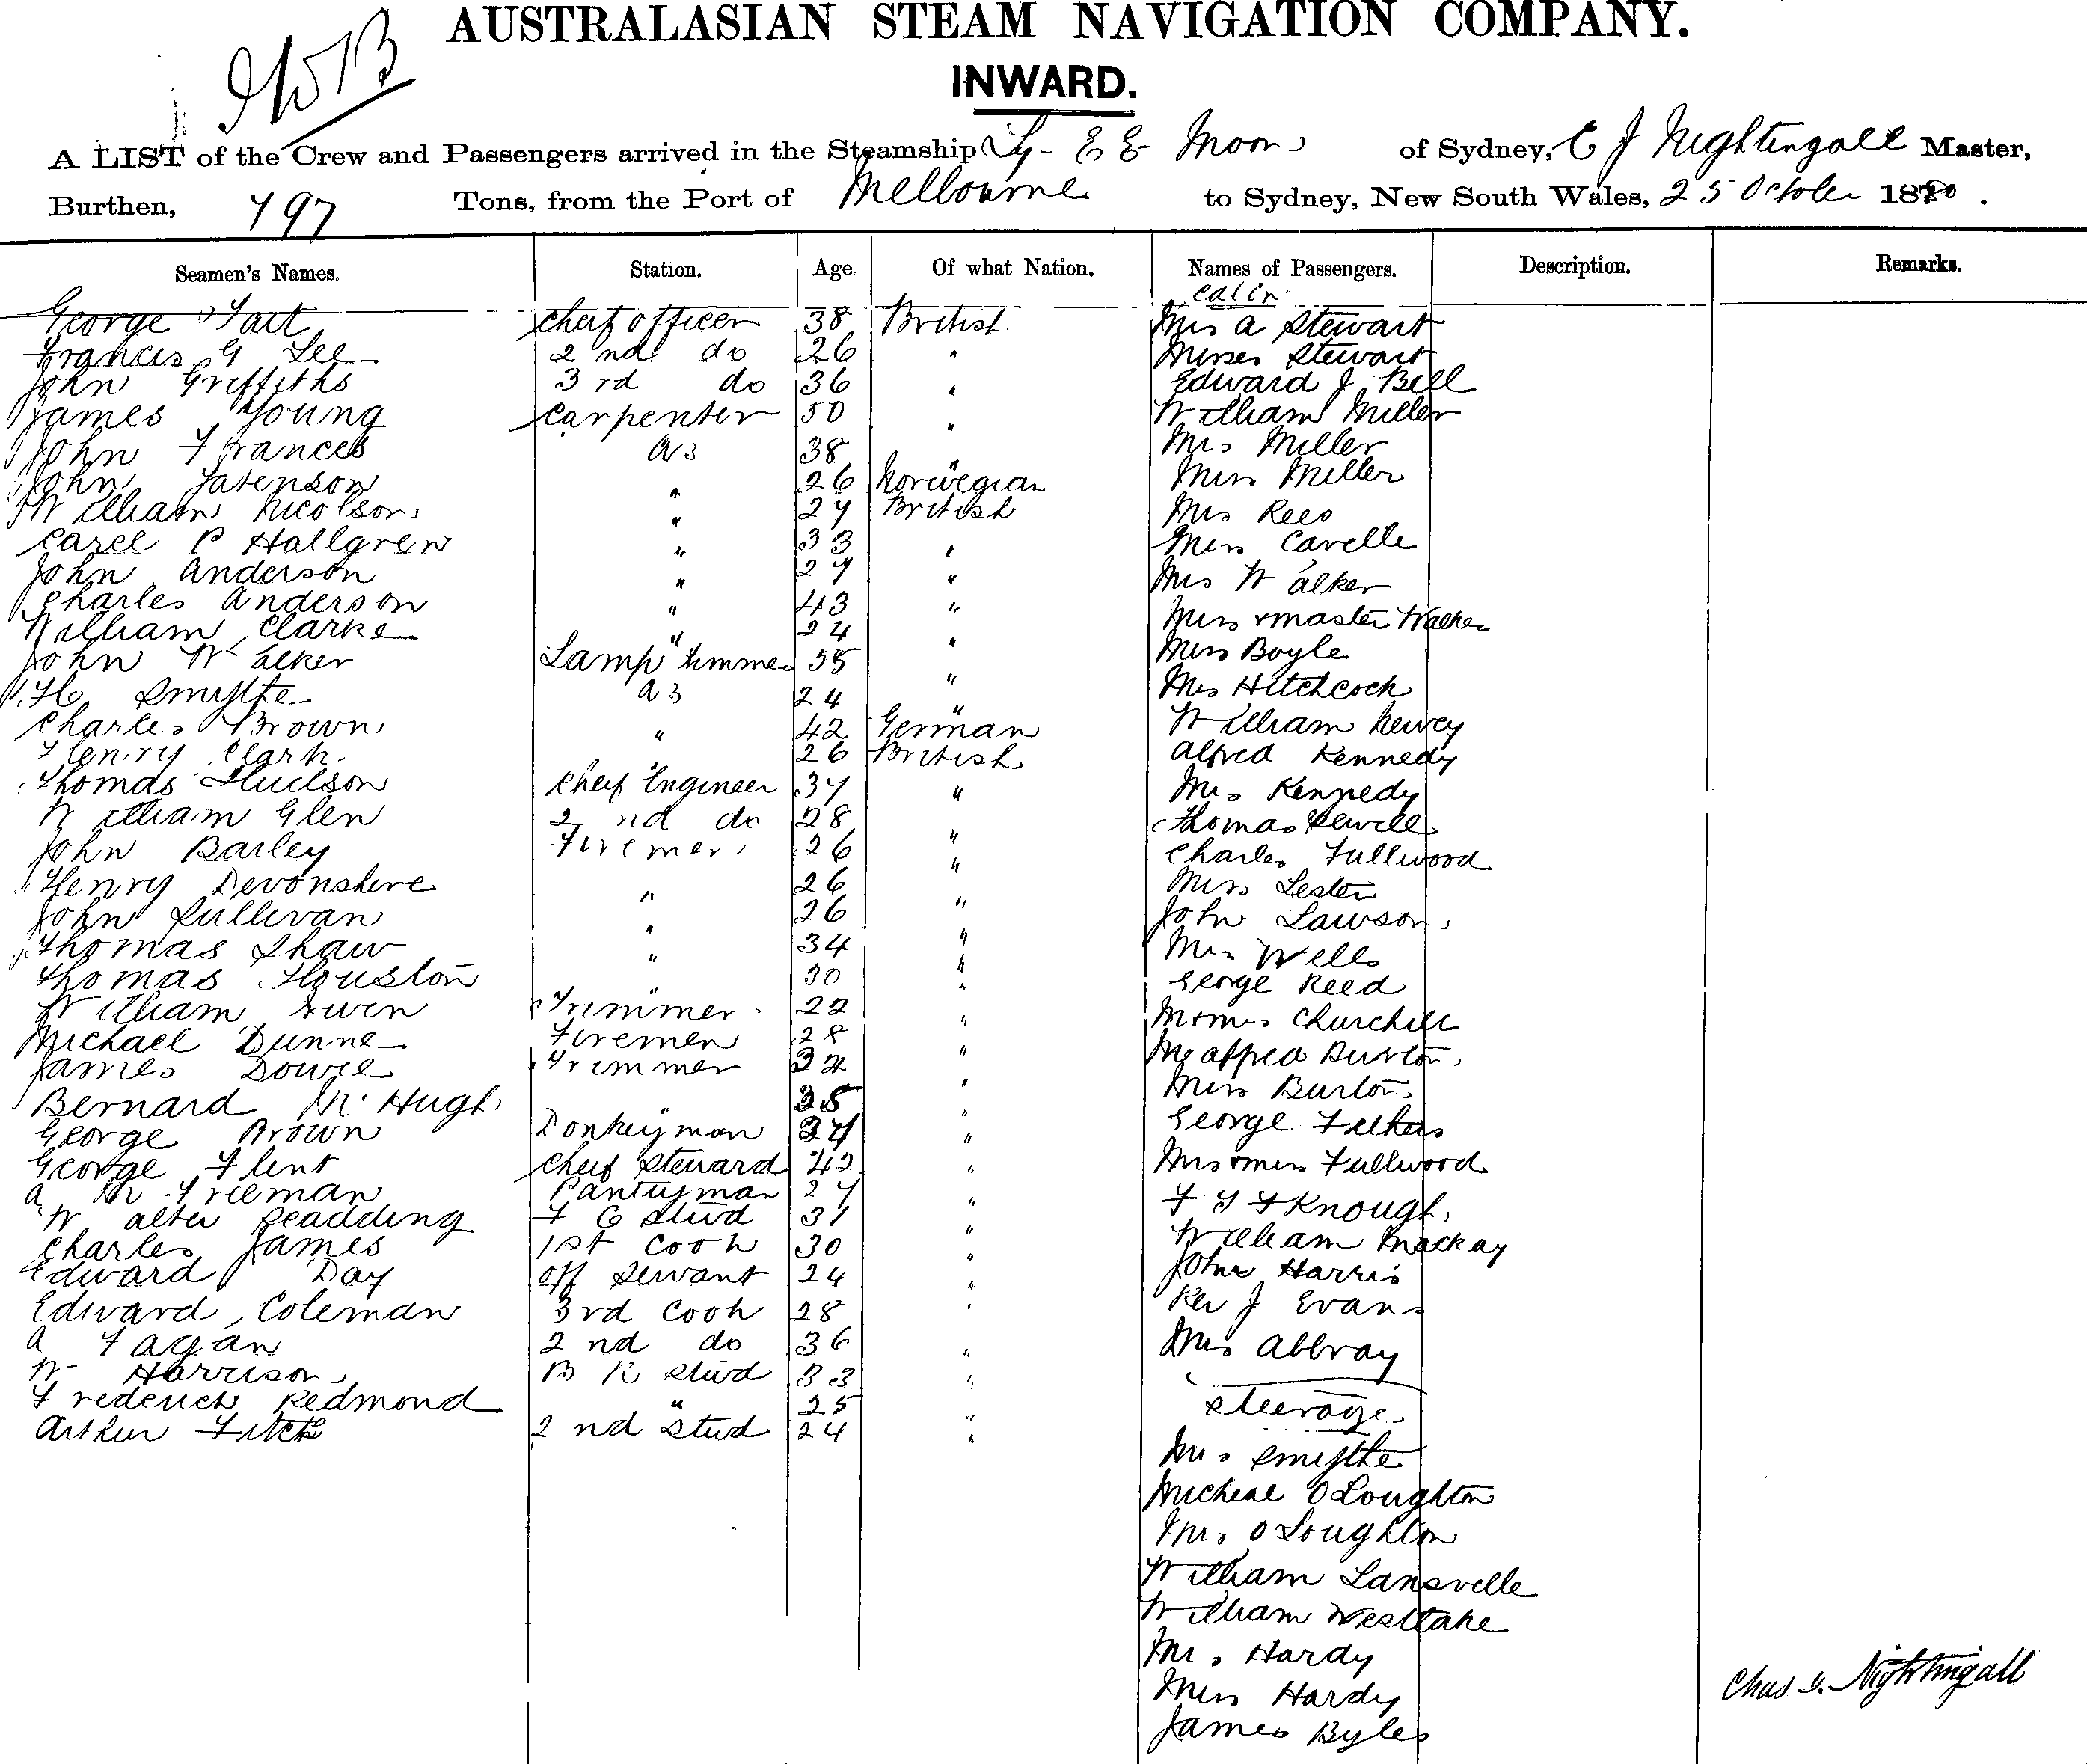 AUSTRALASIAN STEAM NAVIGATION COMPANY.
INWARD.
A LIST of the Crew and Passengers arrived in the Steamship Ly-EE Moon of Sydney, C J Nightingall Master,
Burthen, 797 Tons, from the Port of Melbourne to Sydney, New South Wales, 25 October 1880.
Seamen's Names. Station. Age. Of what Nation. Names of Passengers. Description. Remarks.
Cabin
George Tait Cheif officer 38 British Mrs A Stewart
Francis G Lee 2nd do 26 " Misses Stewart
John Griffiths 3rd do 36 " Edward J Bell
James Young Carpenter 50 " William Miller
John Frances AB 38 " Mrs Miller
John " 26 Norwegian Miss Miller
William Nicolson " 27 British Mrs Rees
Carel P Hallgren " 33 " Miss Cavelle
John Anderson " 27 " Mrs Walker
Charles Anderson " 43 " Miss & Master Walker
William Clarke " 24 " Miss Boyle
John Walker Lamp Trimmer 55 " Mrs Hitchcock
H Smythe AB 24 " William
Charles Brown " 42 German Alfred Kennedy
Henry Clark " 26 British Mrs Kennedy
Thomas Hudson Cheif Engineer 37 " Thomas
William Glen 2nd do 28 " Charles Fullwood
John Barley Firemen 26 " Miss Lester
Henry Devonshire " 26 " John Lawson
John Sullivan " 26 " Mrs Wells
Thomas Shaw " 34 " George Reed
Thomas Houston " 30 " Churchill
William Trimmer 22 " Burton
Michael Dunne Firemen 28 " Miss Burton
James Dowie Trimmer 32 " George
Bernard McHugh " 35 " Mrs & Miss Fullwood
George Brown Donkeyman 34 " Knough
George Flint Cheif Steward 42 " William Mackay
A M Freeman Pantryman 27 " John Harris
Walter Readding F C Stwd 31 " Rev J Evans
Charles James 1st Cook 30 " Mrs Abbray
Edward Day Off Servant 24 "
Edward Coleman 3rd Cook 28 "
A Fagan 2nd do 36 "
W Harrison B R Stwd 33 "
Frederick Redmond " 25 " Steerage
Arthur Fitch 2nd Stwd 24 "
Mrs Smythe
Micheal O Loughton
Mrs O Loughton
William Lansvelle
William Westlake
Mrs Hardy
Miss Hardy
James Byles
Chas J. Nightingall